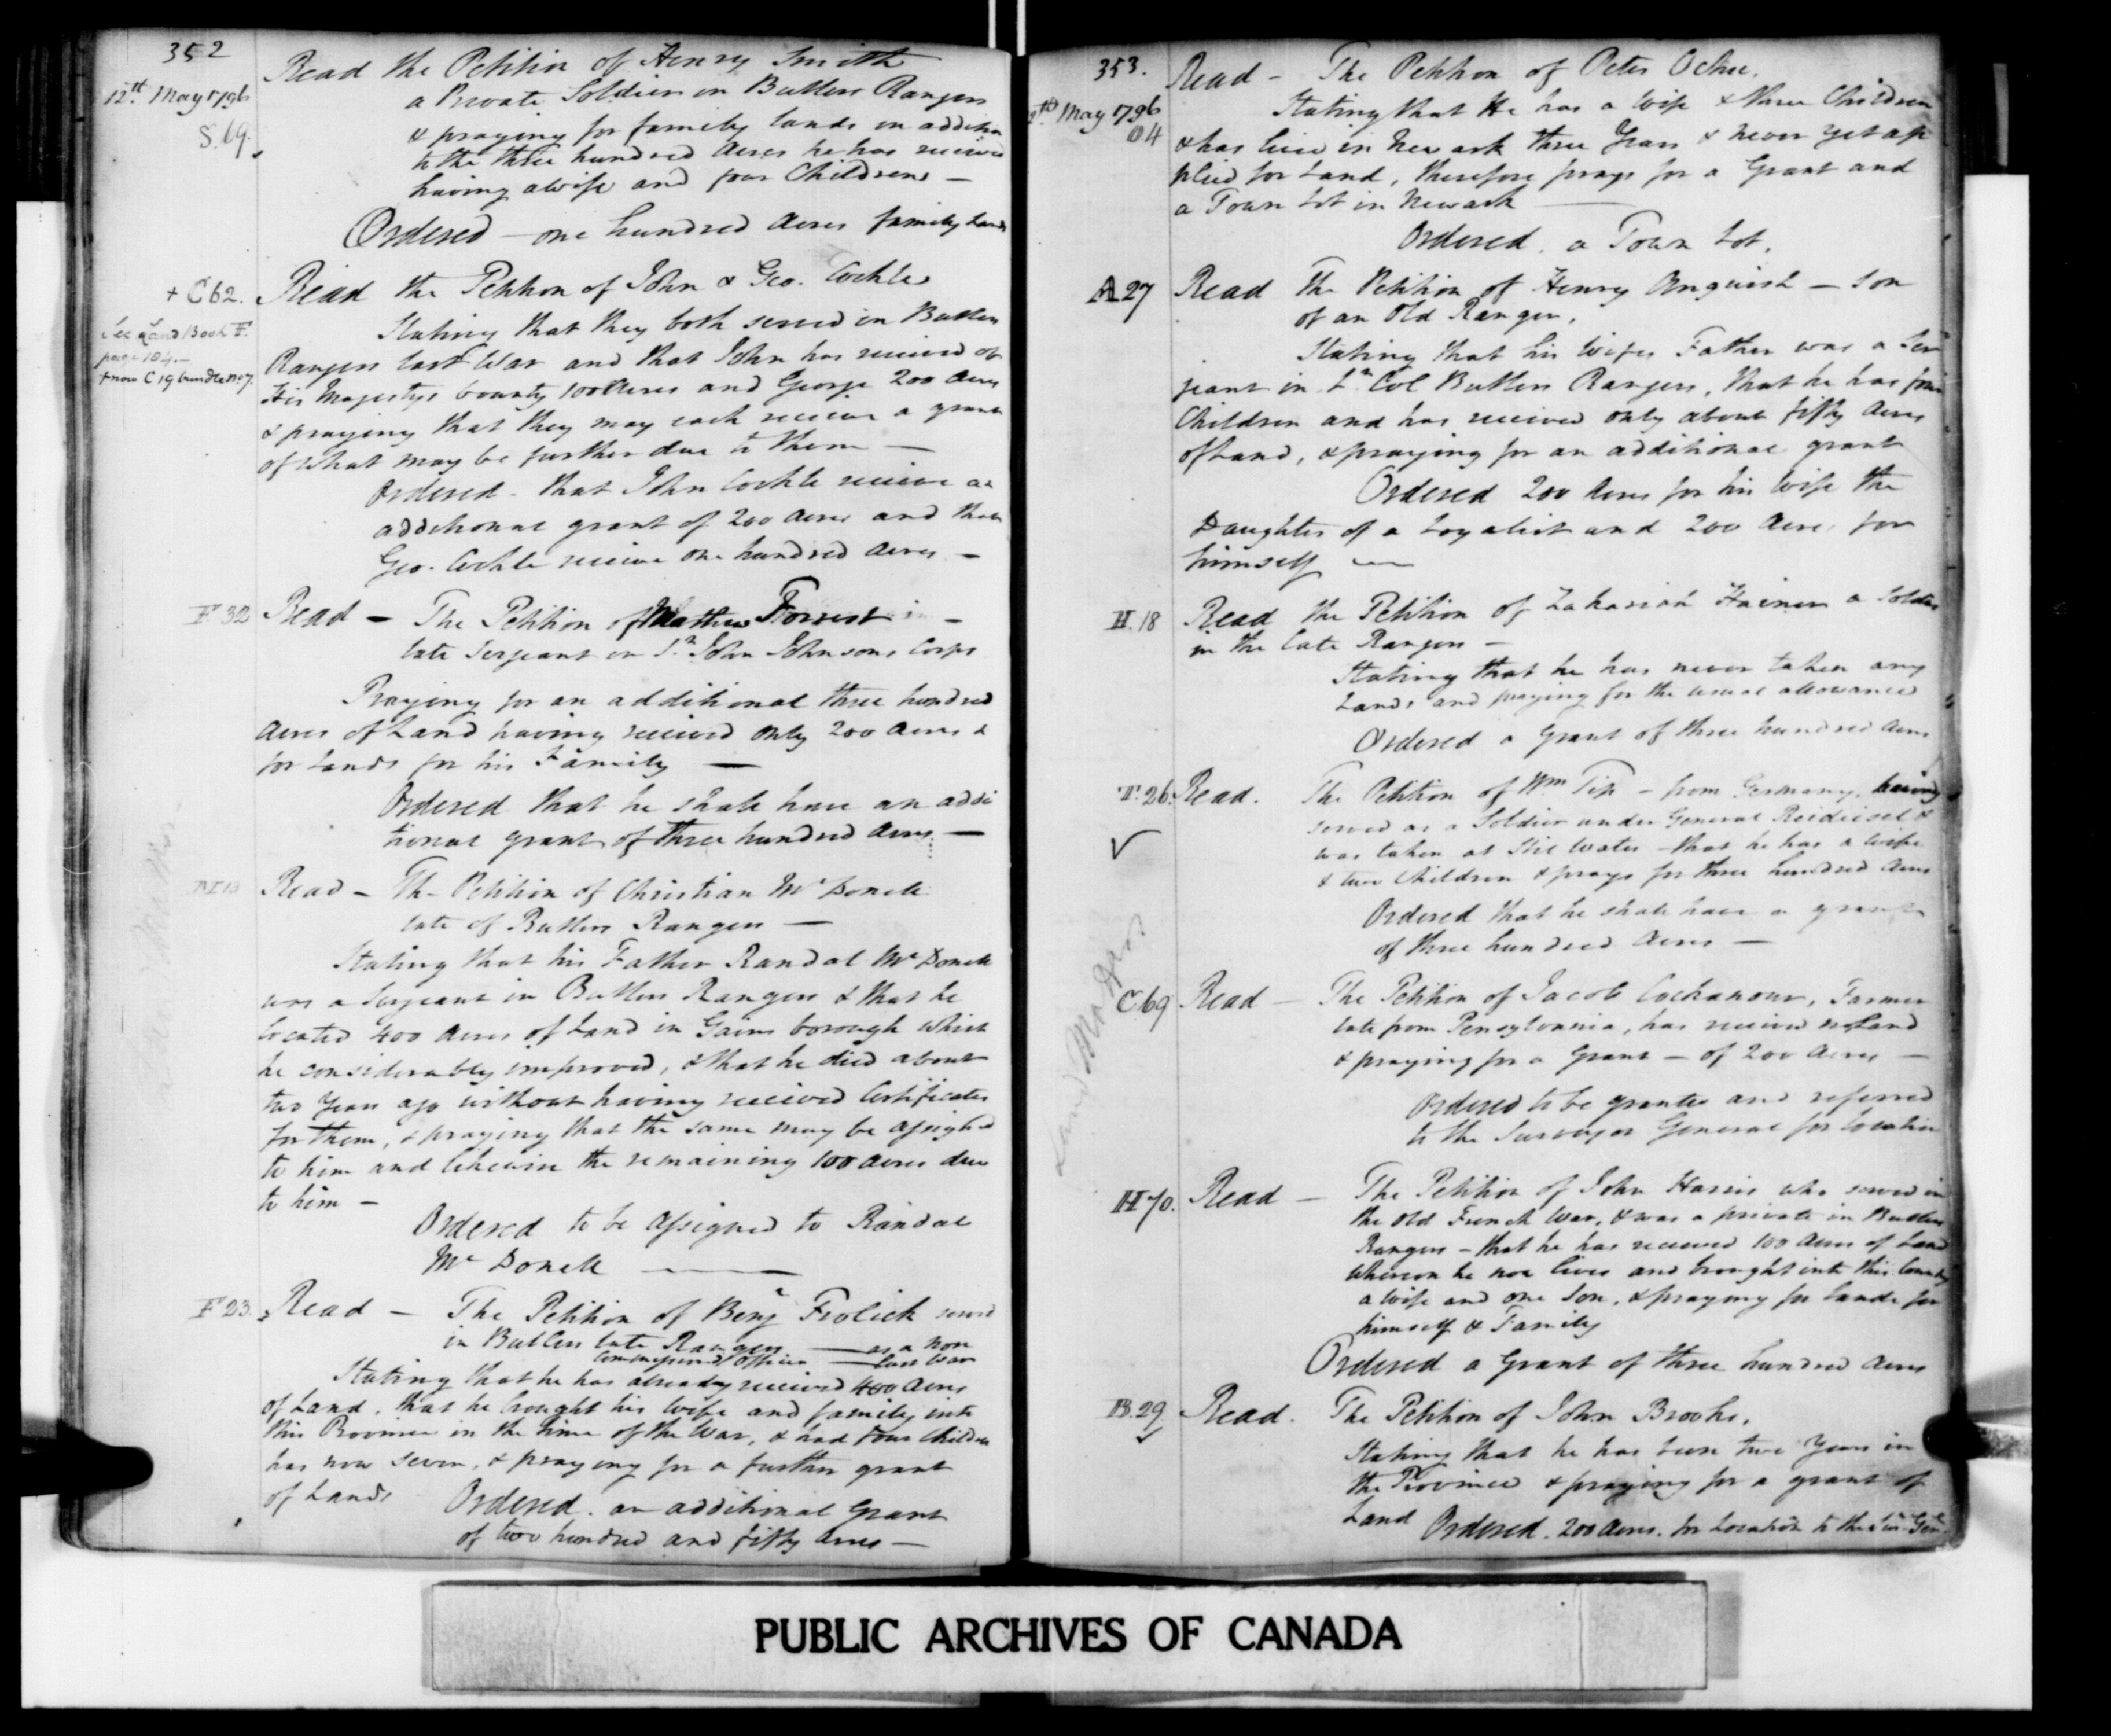 352
12th May 1796
S. 69.
Read the Petition of Henry Smith
a Private Soldier in Butlers Rangers
& praying for family lands in addition
to the three hundred Acres he has received
having a Wife and four Children —
Ordered — one hundred Acres family Lands
+ C 62.
See Land Book F.
page 184 —
+ now C 19 bundle no 7.
Read the Petition of John & Geo. Cockle
Stating that they both served in Butlers
Rangers last War and that John has received of
His Majestys bounty 100 Acres and George 200 Acres
& praying that they may each receive a grant
of what may be further due to them —
Ordered - that John Cockle receive an
additional grant of 200 Acres and that
Geo. Cockle receive one hundred Acres —
F 32
Read — The Petition of Mathew Forrest —
late Serjeant in Sr. John Johnsons Corps
Praying for an additional three hundred
Acres of Land having received only 200 Acres &
for Lands for his Family —
Ordered that he shall have an addi
tional grant of three hundred Acres —
M 13
Read — The Petition of Christian McDonell
late of Butlers Rangers —
Stating that his Father Randal McDonell
was a Serjeant in Butlers Rangers & that he
located 400 Acres of Land in Gainsborough which
he considerably improved, & that he died about
two Years ago without having received Certificates
for them, & praying that the same may be assigned
to him and likewise the remaining 100 Acres due
to him —
Ordered to be assigned to Randal
McDonell —
F 23.
Read — The Petition of Benj Frolick served
in Butlers late Rangers — as a non
Commissioned Officer — last War
Stating that he has already received 400 Acres
of Land, that he brought his Wife and family into
this Province in the time of the War, & had four Children
has now seven, & praying for a further grant
of Lands
Ordered. an additional Grant
of two hundred and fifty Acres —
353.
12th May 1796
O 4
Read — The Petition of Peter
Stating that He has a Wife & three Children
& has lived in Newark three Years & never yet ap
plied for Land, therefore prays for a Grant and
a Town Lot in Newark —
Ordered. a Town Lot.
A 27
Read The Petition of Henry Anguish — Son
of an Old Ranger,
Stating that his Wifes Father was a Ser
jeant in Lt Col Butlers Rangers, that he has four
Children and has received only about fifty Acres
of Land, & praying for an additional grant
Ordered 200 Acres for his Wife the
Daughter of a Loyalist and 200 Acres for
himself —
H. 18
Read the Petition of Zakariah Hainer a Soldier
in the late Rangers —
Stating that he has never taken any
Lands and praying for the usual allowance
Ordered a Grant of three hundred Acres
T. 26.
Read. The Petition of Wm Tip — from Germany, having
served as a Soldier under General Reidiesel &
was taken at Still Water — that he has a Wife
& two Children & prays for three hundred Acres
Ordered that he shall have a grant
of three hundred Acres —
C 69
Read — The Petition of Jacob Cockanour, Farmer
late from Pensylvania, has received no Land
& praying for a Grant — of 200 Acres —
Ordered to be granted and referred
to the Surveyor General for location
H 70.
Read — The Petition of John Harris who served in
the old French War, & was a private in Butlers
Rangers — that he has received 100 Acres of Land
whereon he now lives and brought into this Country
a Wife and one Son, & praying for Lands for
himself & Family
Ordered a Grant of three hundred Acres
B. 29
Read. The Petition of John Brooks.
Stating that he has been two Years in
the Province & praying for a grant of
Land
Ordered. 200 Acres. for Location to the Sur. Genl.
PUBLIC ARCHIVES OF CANADA